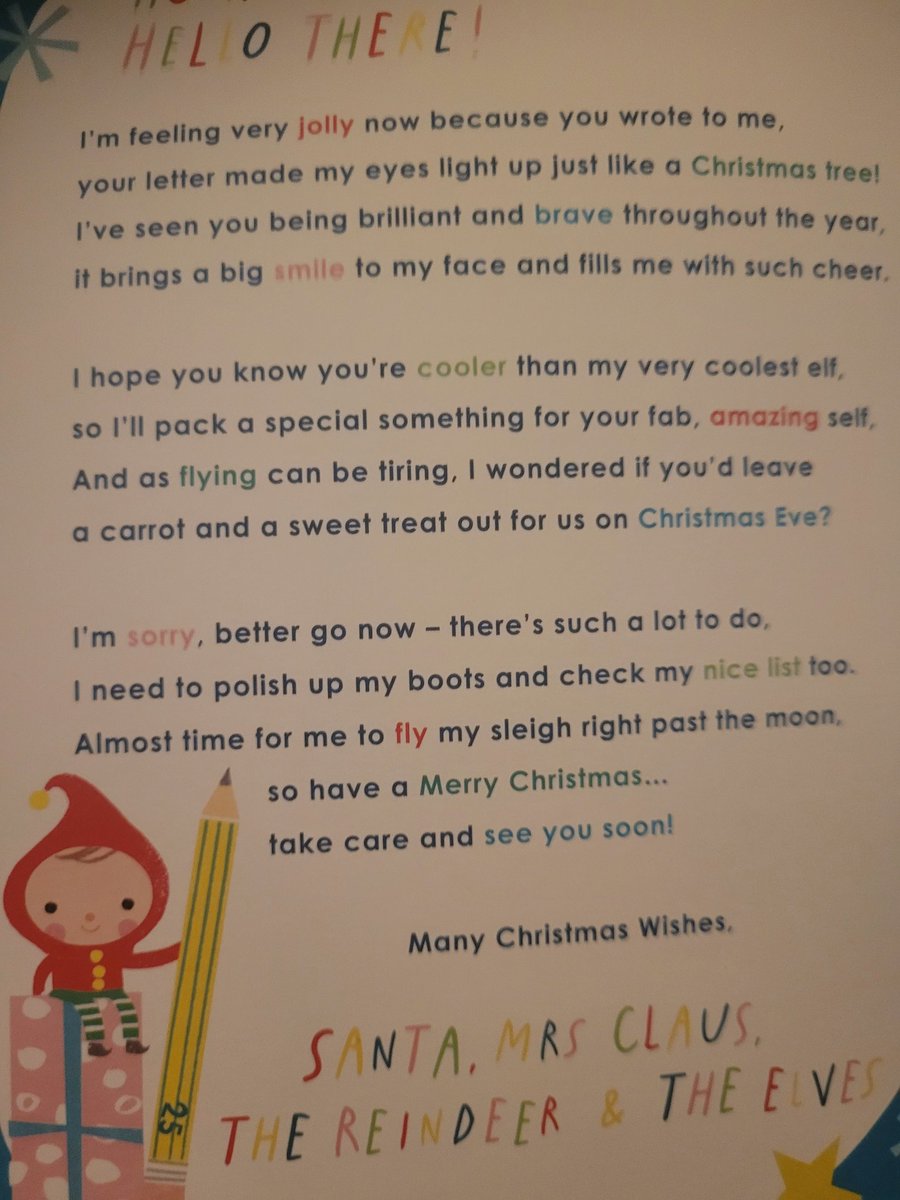 HELLO THERE!
I'm feeling very jolly now because you wrote to me,
your letter made my eyes light up just like a Christmas tree!
I've seen you being brilliant and brave throughout the year,
it brings a big smile to my face and fills me with such cheer.
I hope you know you're cooler than my very coolest elf,
so I'll pack a special something for your fab, amazing self,
And as flying can be tiring, I wondered if you'd leave
a carrot and a sweet treat out for us on Christmas Eve?
I'm sorry, better go now – there's such a lot to do,
I need to polish up my boots and check my nice list too.
Almost time for me to fly my sleigh right past the moon,
so have a Merry Christmas...
take care and see you soon!
Many Christmas Wishes,
SANTA, MRS CLAUS,
THE REINDEER & THE ELVES
25